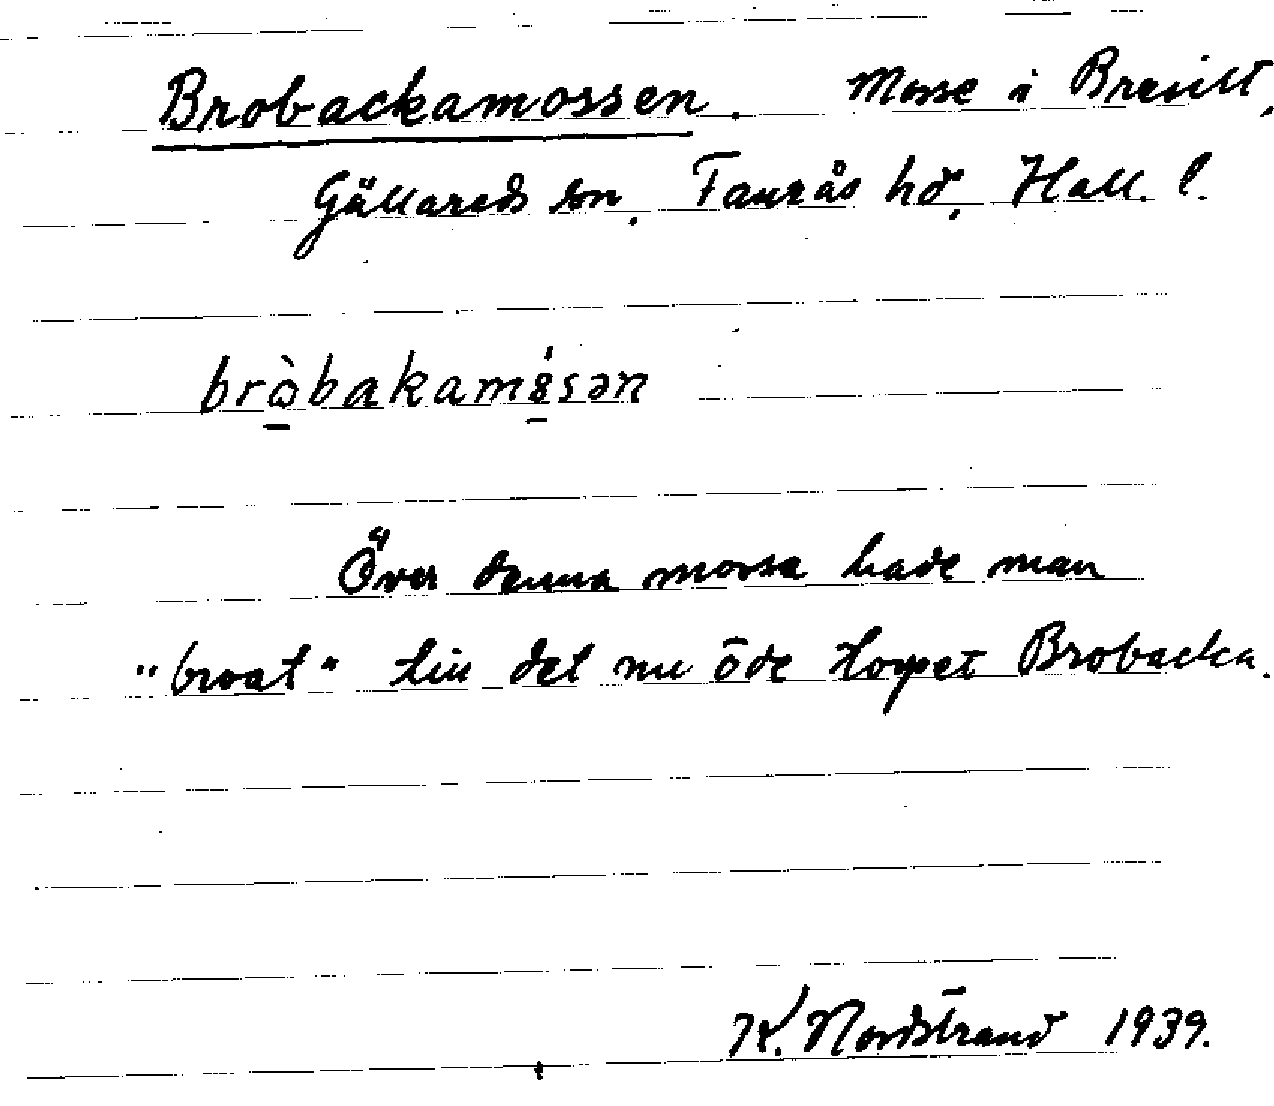 Brobackamossen. Mosse i Bresilt,
Gällareds sn, Faurås hd, Hall. l.
bròbakamósən
Över denna mossa hade man
"broat" till det nu öde torpet Brobacka.
K. Nordstrand 1939.